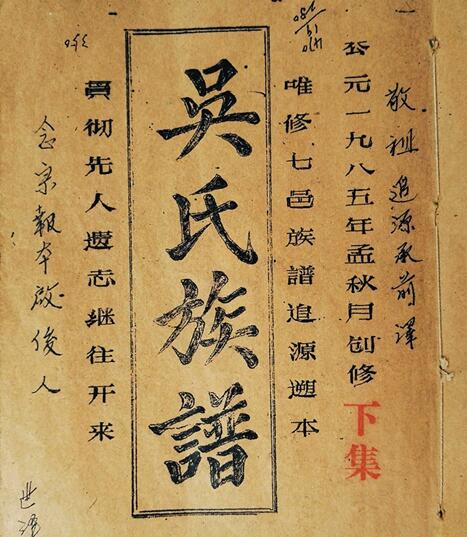 敬祖追源承前澤
公元一九八五年孟秋月创修
下集
唯修七邑族譜追源遡本
吳氏族譜
貫彻先人遗志继往开来
念宗報本啟後人